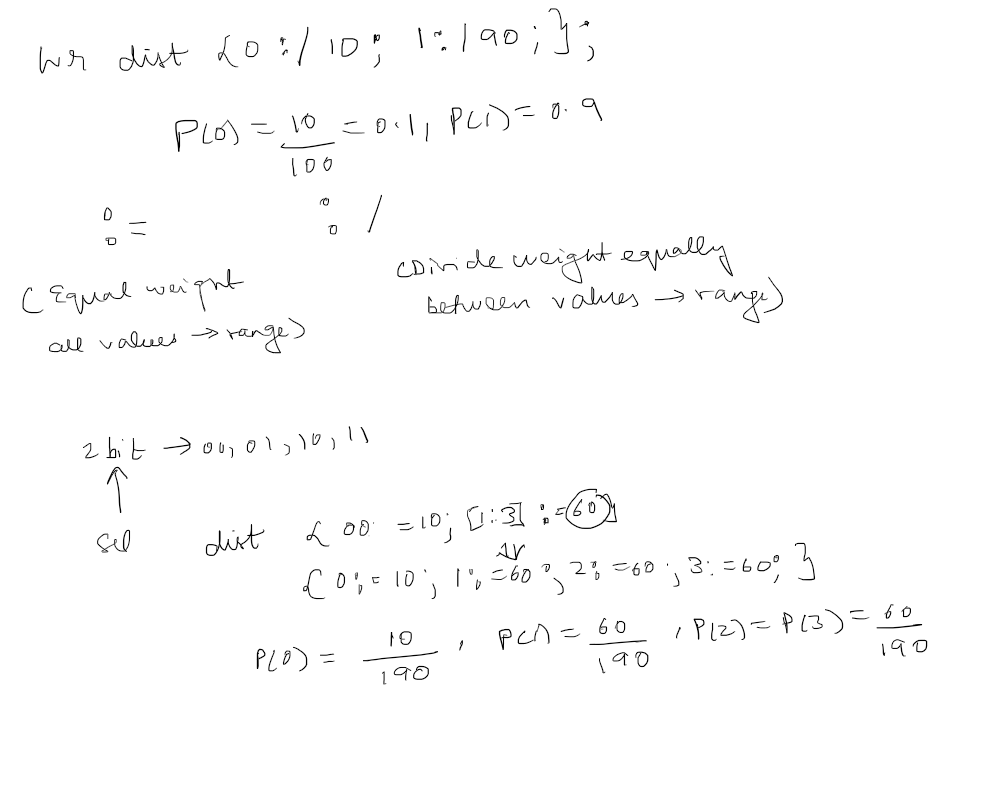 wr dist {0 :/ 10; 1 :/ 90; };
P(0) = 10/100 = 0.1, P(1) = 0.9
:= :/
(Equal weight all values → range)
(Divide weight equally between values → range)
2 bit → 00, 01, 10, 11
↑
sel
dist { 00: =10; [1:3] := 60}
{ 0:= 10; 1:=60; 2:=60; 3:=60; }
P(0) = 10/190, P(1) = 60/190, P(2) = P(3) = 60/190